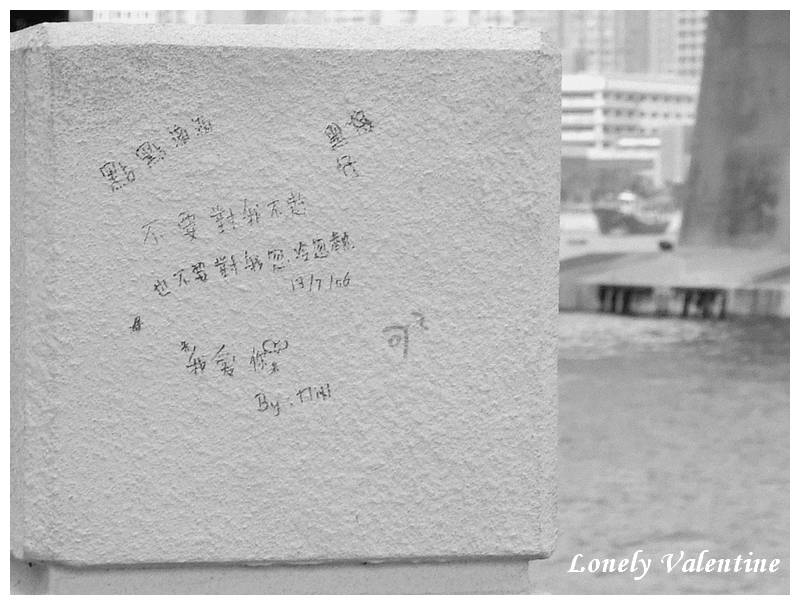 點點滴滴
不要對我不起
也不要對我忽冷忽熱
13/7/06
我愛你
By:
可
Lonely Valentine